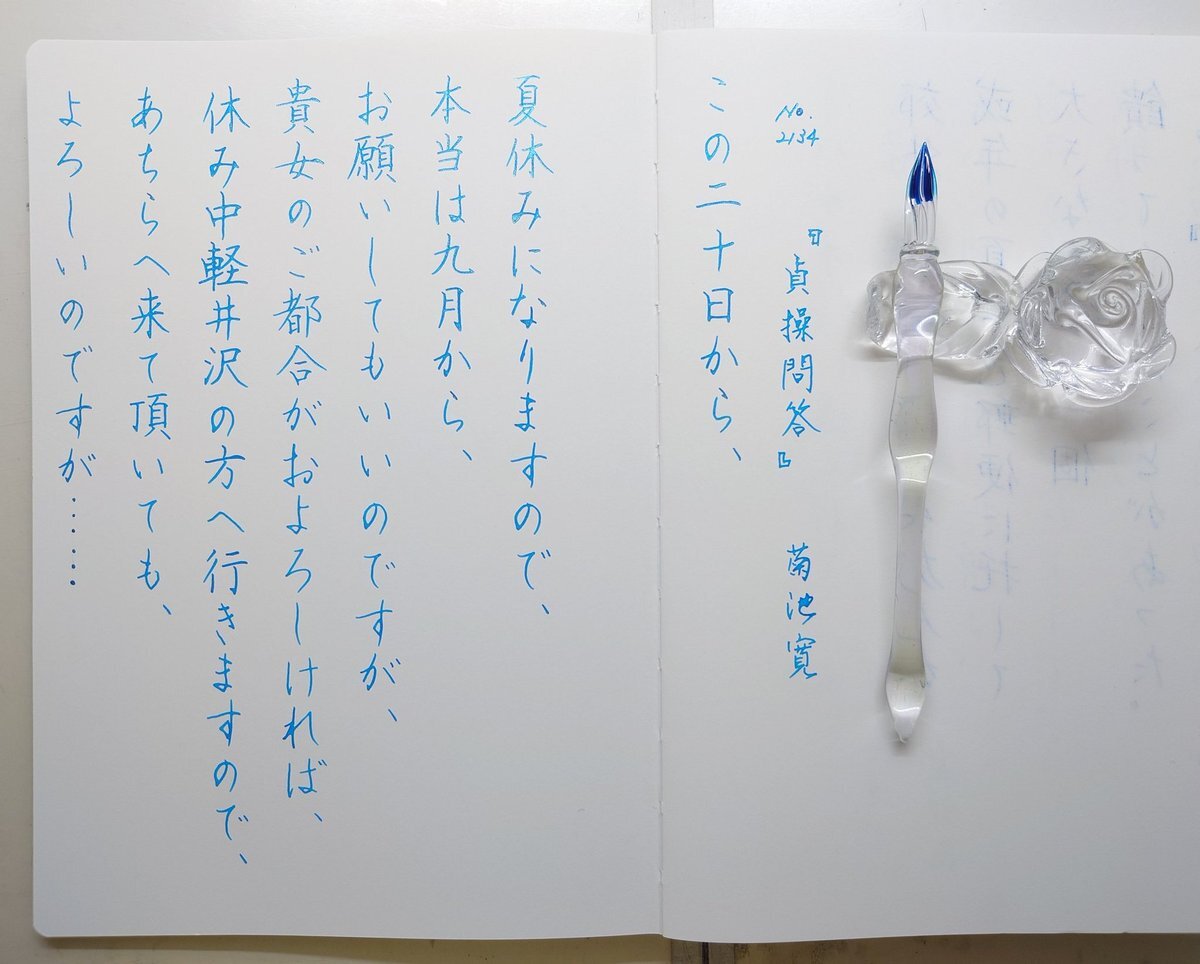 No.
2134
『貞操問答』 菊池寛
この二十日から、
夏休みになりますので、
本当は九月から、
お願いしてもいいのですが、
貴女のご都合がおよろしければ、
休み中軽井沢の方へ行きますので、
あちらへ来て頂いても、
よろしいのですが……